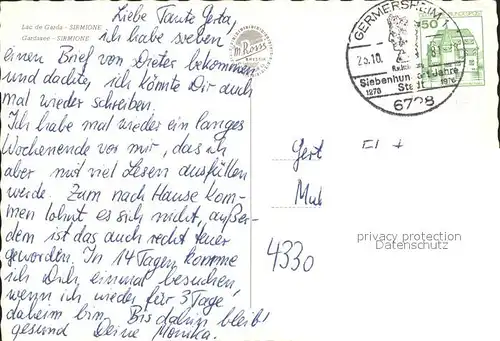 Lac de Garda - SIRMIONE
Gardasee - SIRMIONE
Liebe Tante Gerta,
ich habe soeben
einen Brief von Dieter bekommen
und dachte, ich könnte Dir auch
mal wieder schreiben.
Ich habe mal wieder ein langes
Wochenende vor mir, das ich
aber mit viel Lesen ausfüllen
werde. Zum nach Hause kom-
men lohnt es sich nicht, außer-
dem ist das auch recht teuer
geworden. In 14 Tagen komme
ich Dich einmal besuchen,
wenn ich wieder für 3 Tage
daheim bin. Bis dahin bleib!
gesund Deine Monika.
GERMERSHEIM
25.10.
81
Siebenhundert Jahre
Stadt
1276 1976
6728
50
Gert
Mul
4330
privacy protection
Datenschutz